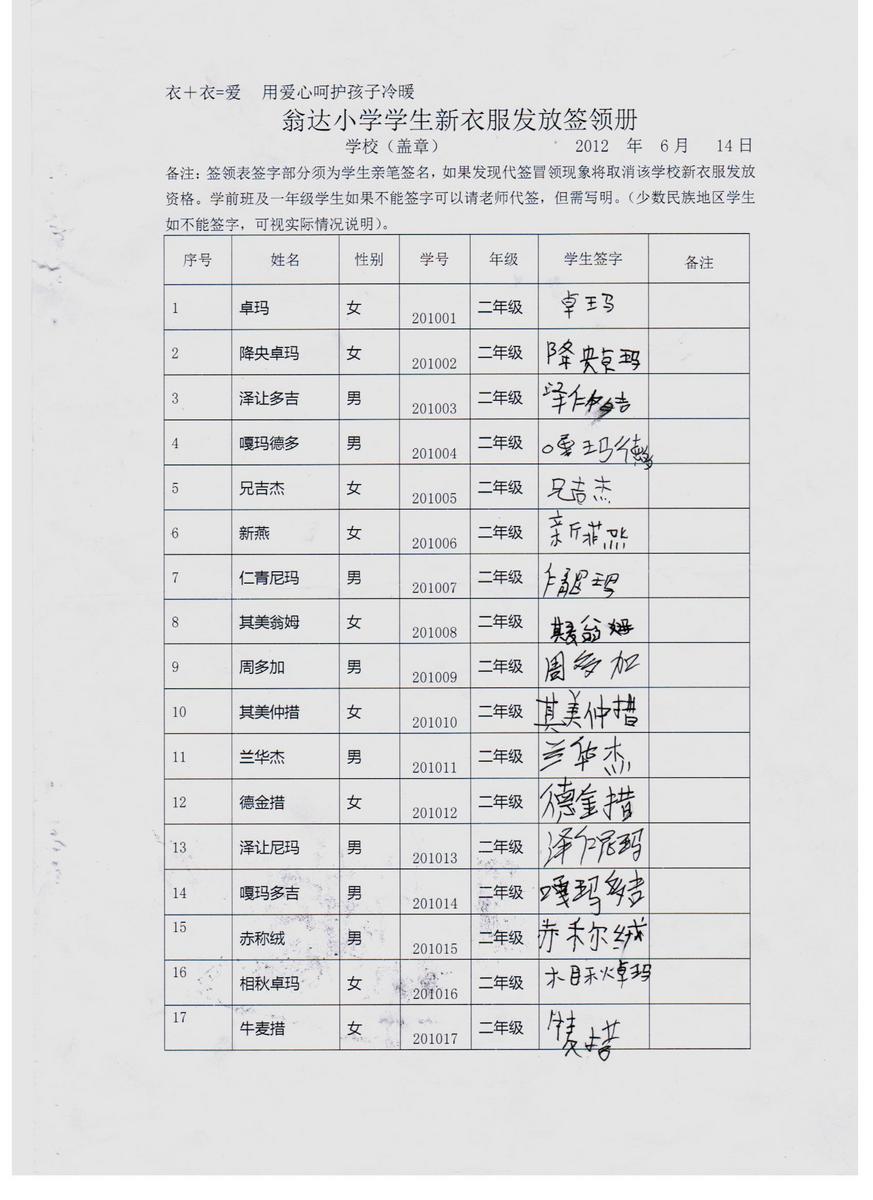 衣＋衣=爱 用爱心呵护孩子冷暖
翁达小学学生新衣服发放签领册
学校（盖章） 2012 年 6月 14日
备注：签领表签字部分须为学生亲笔签名，如果发现代签冒领现象将取消该学校新衣服发放
资格。学前班及一年级学生如果不能签字可以请老师代签，但需写明。（少数民族地区学生
如不能签字，可视实际情况说明）。
序号 姓名 性别 学号 年级 学生签字 备注
1 卓玛 女 201001 二年级 卓玛
2 降央卓玛 女 201002 二年级 降央卓玛
3 泽让多吉 男 201003 二年级 泽仁多吉
4 嘎玛德多 男 201004 二年级 嘎玛德多
5 兄吉杰 女 201005 二年级 兄吉杰
6 新燕 女 201006 二年级 新燕
7 仁青尼玛 男 201007 二年级 仁青尼玛
8 其美翁姆 女 201008 二年级 其美翁姆
9 周多加 男 201009 二年级 周多加
10 其美仲措 女 201010 二年级 其美仲措
11 兰华杰 男 201011 二年级 兰华杰
12 德金措 女 201012 二年级 德金措
13 泽让尼玛 男 201013 二年级 泽仁尼玛
14 嘎玛多吉 男 201014 二年级 嘎玛多吉
15 赤称绒 男 201015 二年级 赤称绒
16 相秋卓玛 女 201016 二年级 相秋卓玛
17 牛麦措 女 201017 二年级 牛麦措